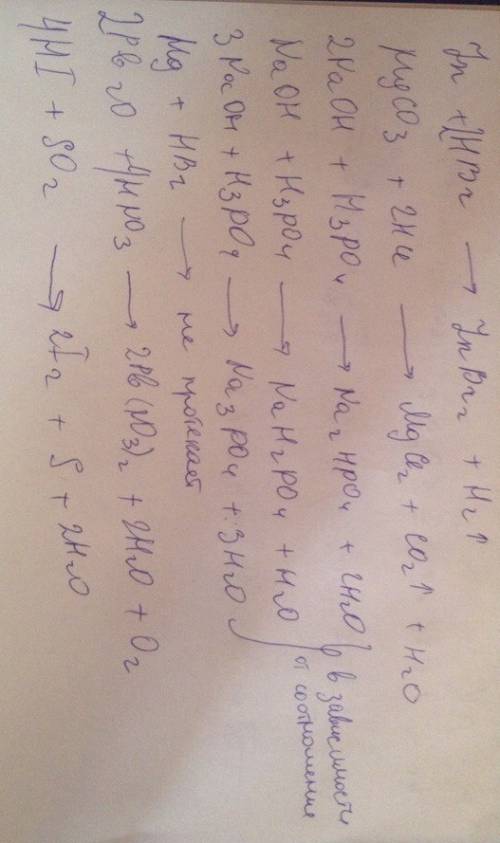 Zn + 2HBr → ZnBr₂ + H₂↑
MgCO3 + 2HCl → MgCl₂ + CO₂↑ + H₂O
2NaOH + H3PO4 → Na₂HPO4 + 2H₂O
NaOH + H3PO4 → NaH₂PO4 + H₂O
3NaOH + H3PO4 → Na3PO4 + 3H₂O
в зависимости
от соотношения
Mg + HBr → не протекает
2PbO₂ + 4HNO3 → 2Pb(NO3)₂ + 2H₂O + O₂
4HI + SO₂ → 2I₂ + S + 2H₂O